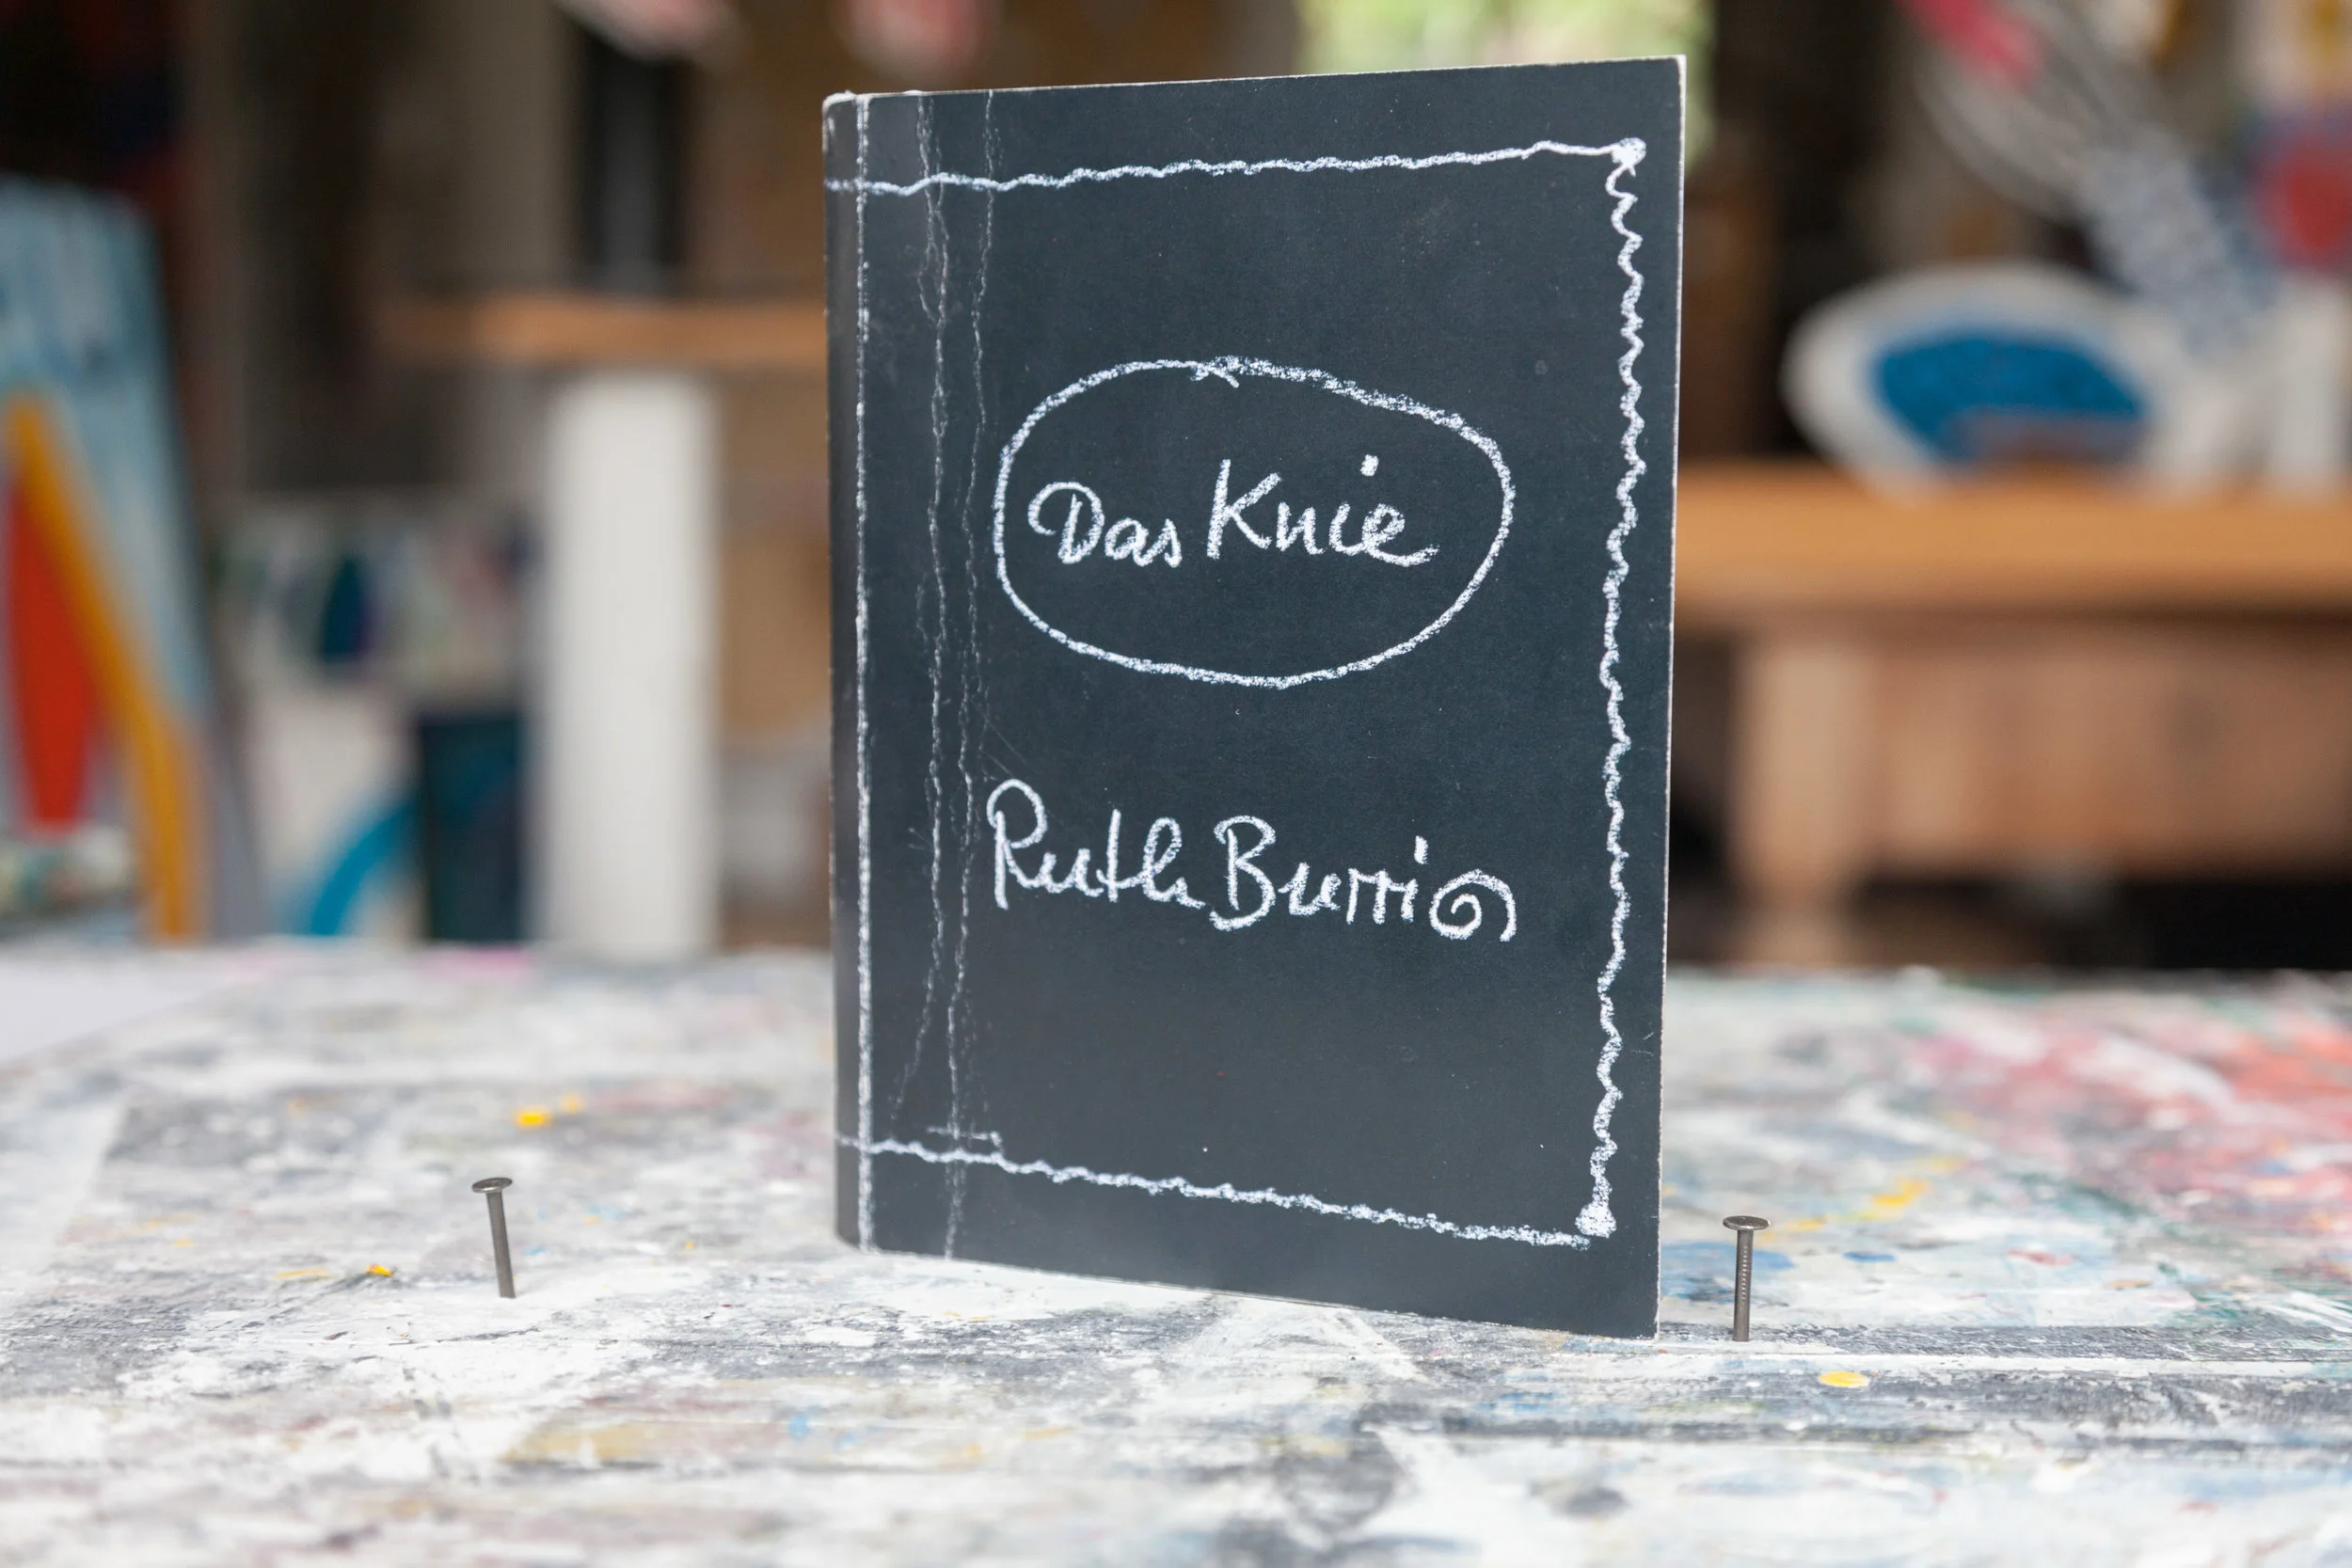 Das Knie
Ruth Burri